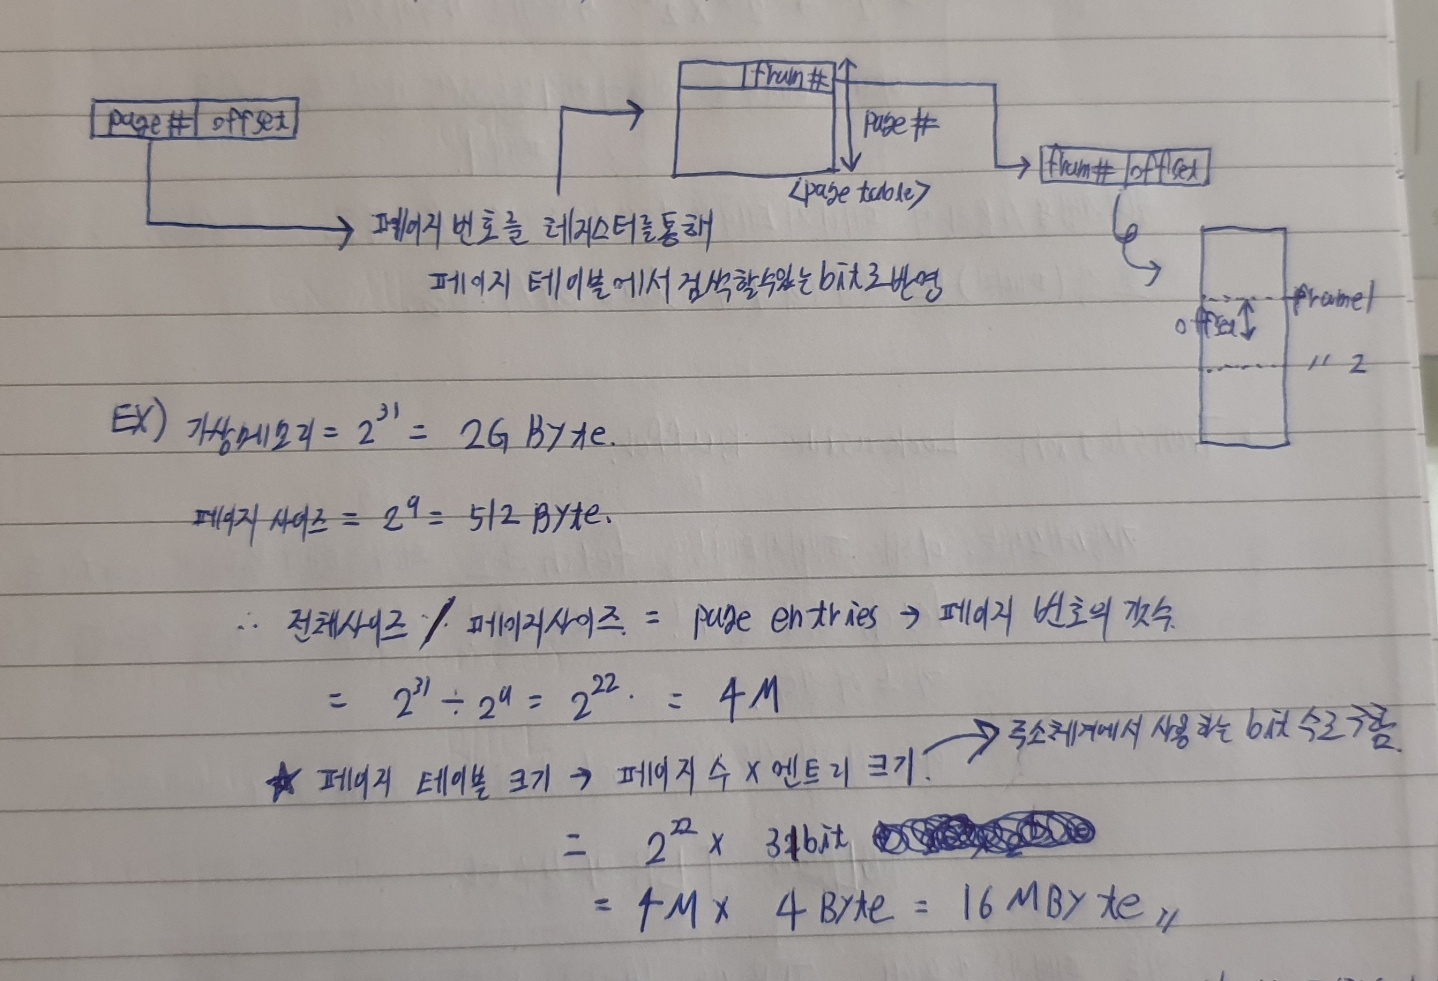 page# offset
fram#
page#
<page table>
fram# offset
페이지 번호를 레지스터를 통해
페이지 테이블에서 검색할수있는 bit로 반영
frame1
offset
〃 2
EX) 가상메모리 = 2^31 = 2G Byte.
페이지 사이즈 = 2^9 = 512 Byte.
∴ 전체사이즈 / 페이지사이즈 = page entries → 페이지 번호의 갯수
= 2^31 ÷ 2^9 = 2^22. = 4M
→ 주소체계에서 사용하는 bit 수로 구함.
★ 페이지 테이블 크기 → 페이지 수 × 엔트리 크기.
= 2^22 × 31bit
= 4M × 4 Byte = 16 MByte〃